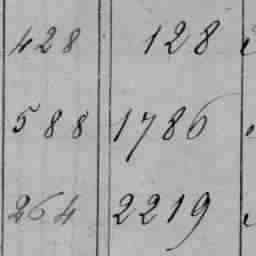 428 128
588 1786
264 2219